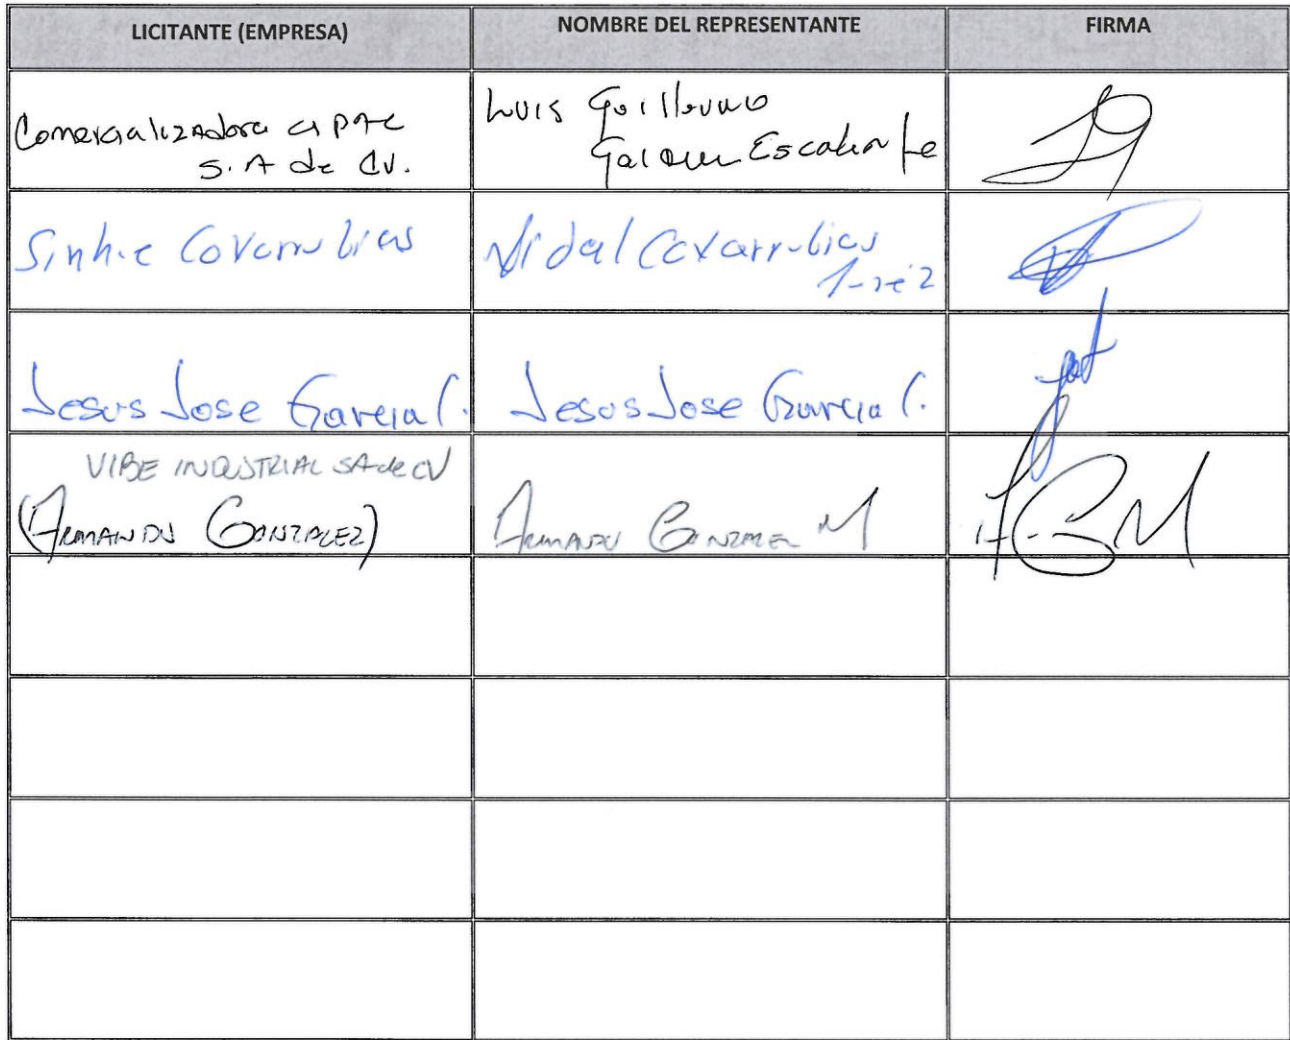 LICITANTE (EMPRESA) NOMBRE DEL REPRESENTANTE FIRMA
Comercializadora CIPAC
S.A de CV.
Luis Guillermo
Escalante
Sinhue Covarrubias
Vidal Covarrubias
Jesus Jose Garcia C.
Jesus Jose Garcia C.
VIBE INDUSTRIAL SA de CV
(ARMANDO GONZALEZ)
ARMANDO GONZALEZ M